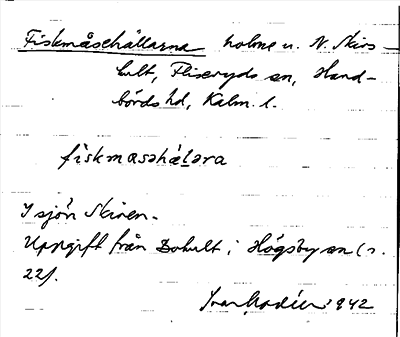 Fiskmåsehällarna holme u. N. Skirs-
hult, Fliseryds sn, Hand-
börds hd, Kalm. l.
fiskmasəhälara
I sjön Skiren.
Uppgift från Bohult i Högsby sn (s.
22).
Ivar Modéer 1942